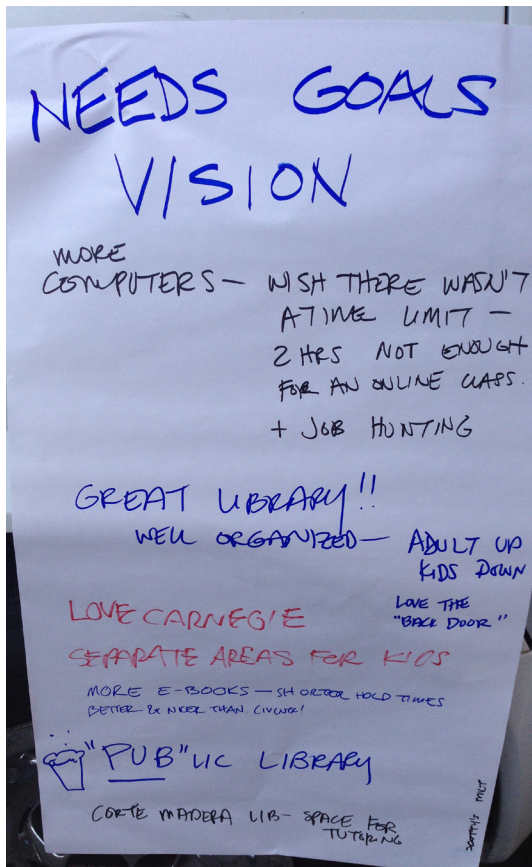 NEEDS GOALS
VISION
MORE
COMPUTERS — WISH THERE WASN'T
A TIME LIMIT —
2 HRS NOT ENOUGH
FOR AN ONLINE CLASS.
+ JOB HUNTING
GREAT LIBRARY!!
WELL ORGANIZED — ADULT UP
KIDS DOWN
LOVE THE
"BACK DOOR"
LOVE CARNEGIE
SEPARATE AREAS FOR KIDS
MORE E-BOOKS — SHORTER HOLD TIMES
BETTER & NICER THAN
"PUB"LIC LIBRARY
CORTE MADERA LIB - SPACE FOR
TUTORING